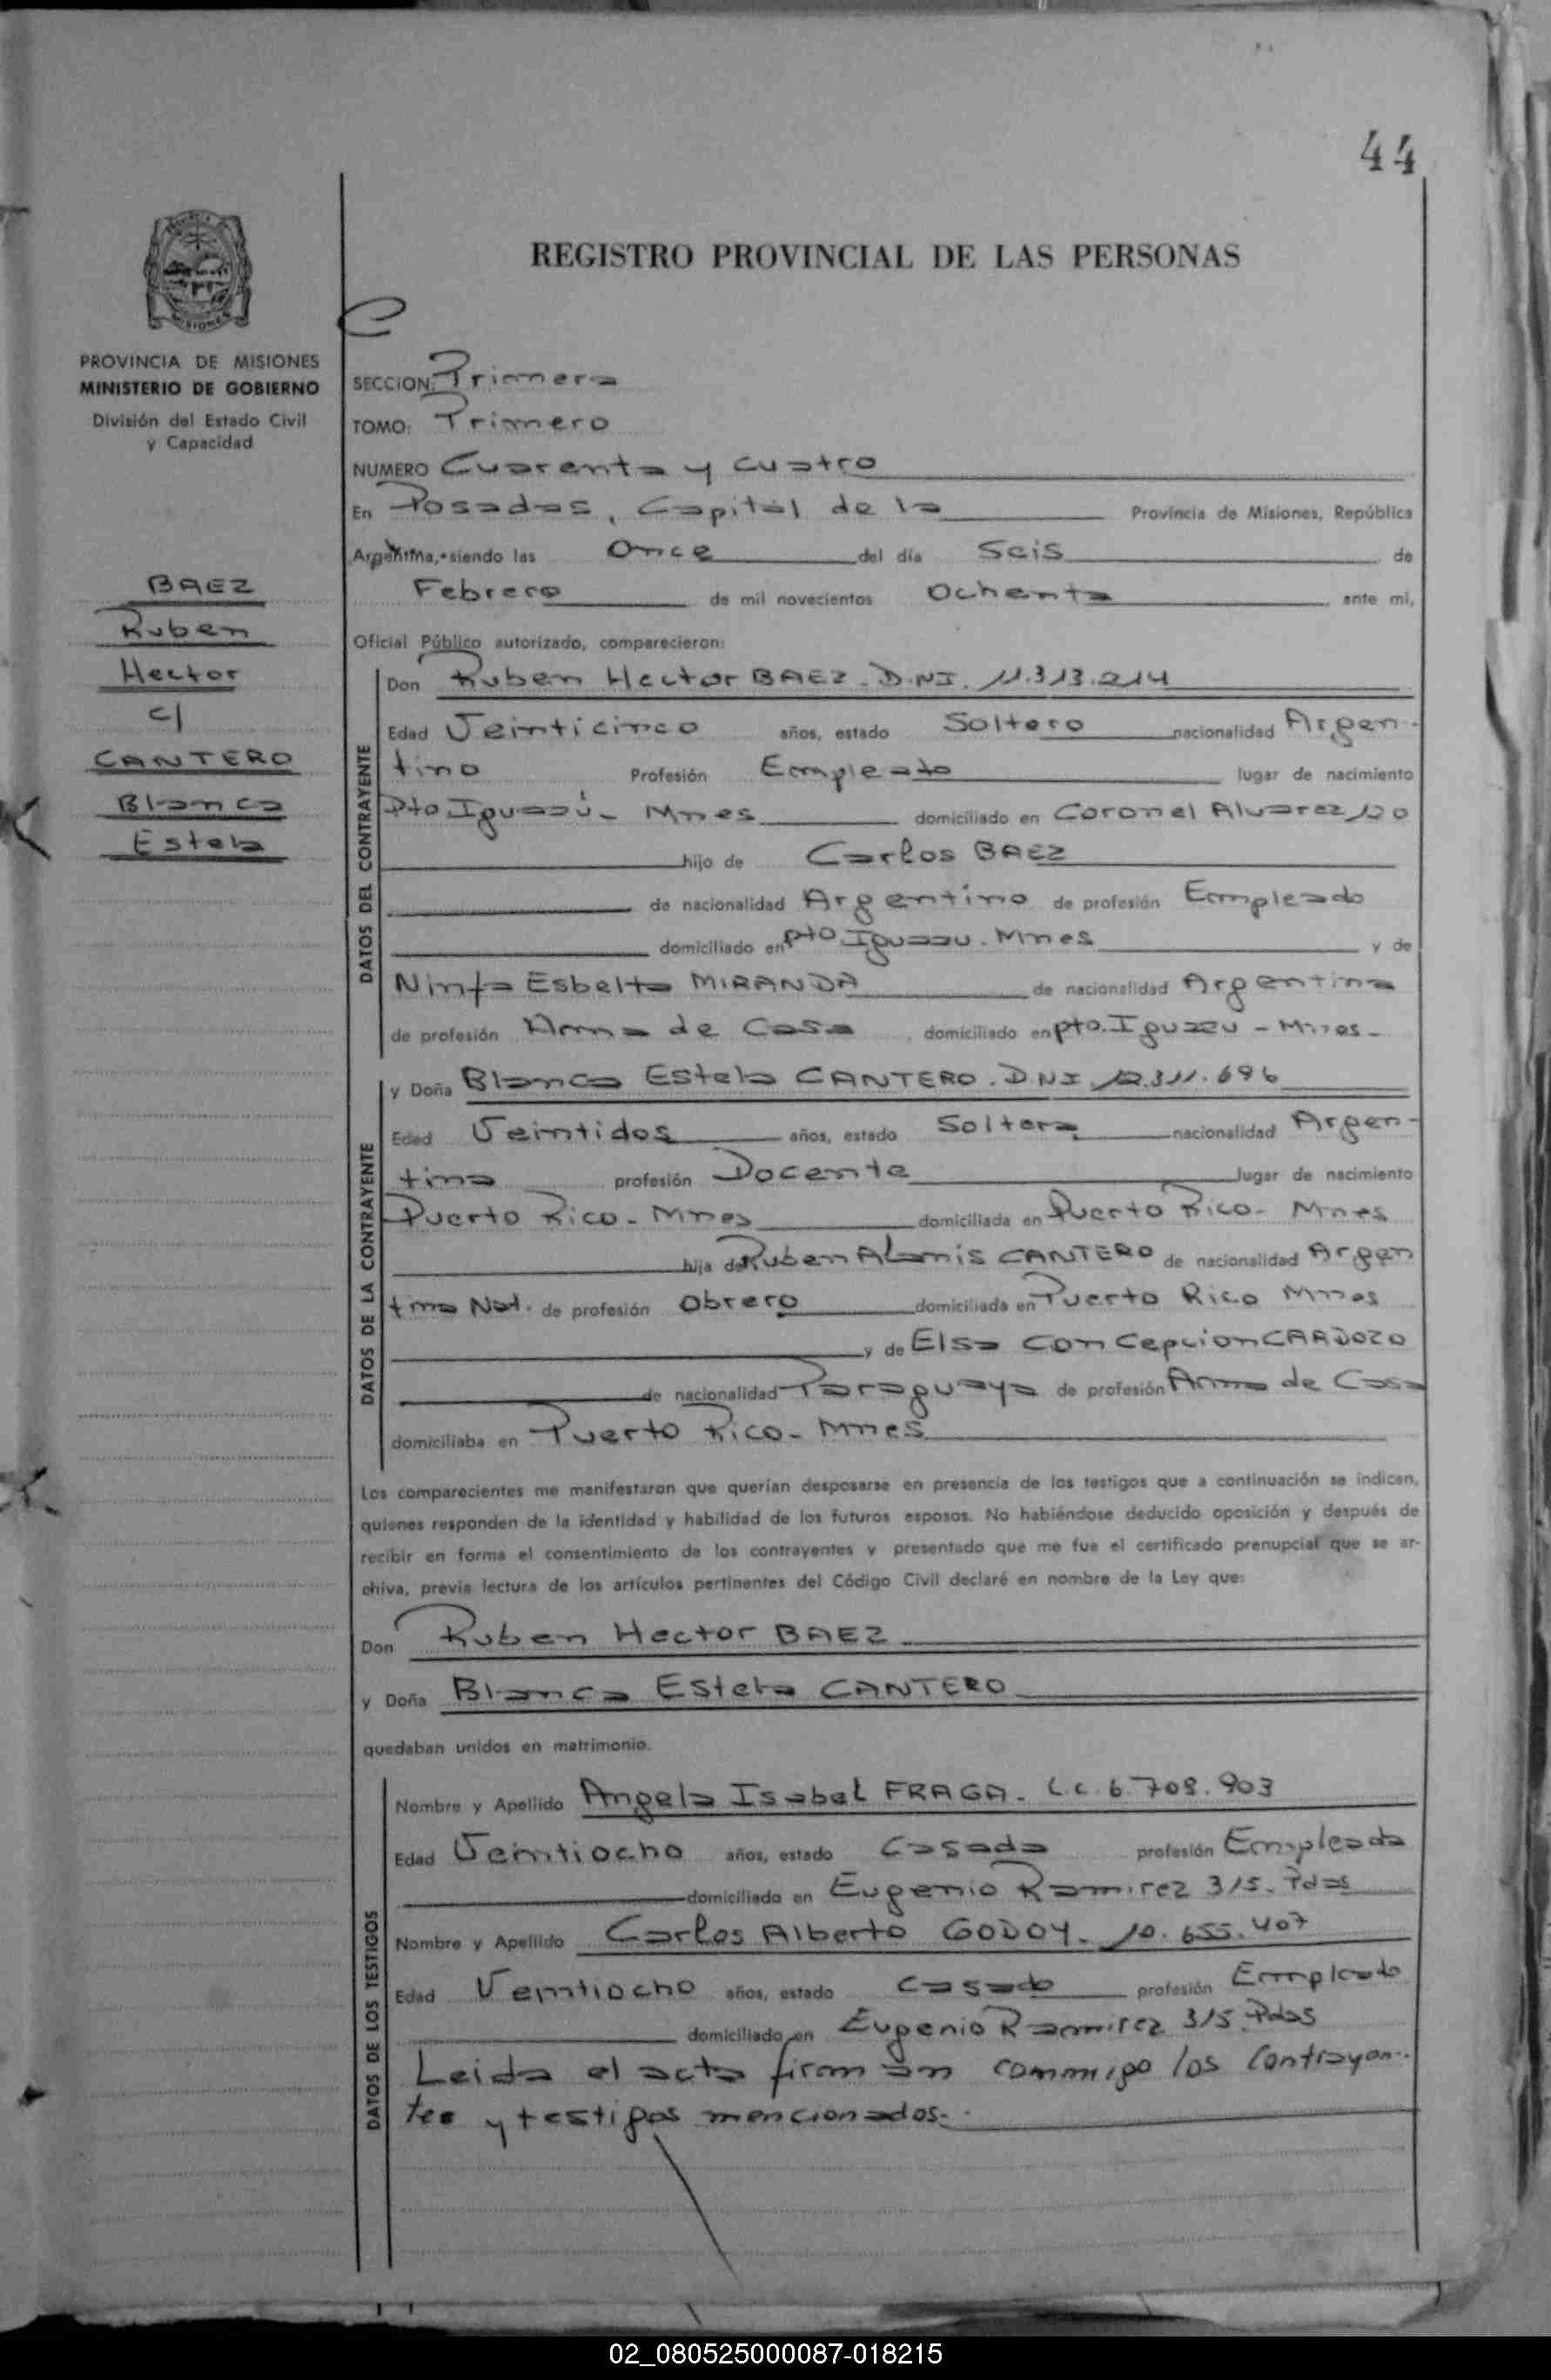 44
REGISTRO PROVINCIAL DE LAS PERSONAS
PROVINCIA DE MISIONES
MINISTERIO DE GOBIERNO
División del Estado Civil
y Capacidad
BAEZ
Ruben
Hector
c/
CANTERO
Blanca
Estela
SECCION: Primera
TOMO: Primero
NUMERO Cuarenta y cuatro
En Posadas, Capital de la Provincia de Misiones, República
Argentina, siendo las Once del día Seis de
Febrero de mil novecientos Ochenta ante mi,
Oficial Público autorizado, comparecieron:
DATOS DEL CONTRAYENTE
Don Ruben Hector BAEZ. D.NI. 11.313.214
Edad Veinticinco años, estado Soltero nacionalidad Argen-
tino Profesión Empleado lugar de nacimiento
Pto Iguazú- Mnes domiciliado en Coronel Alvarez
hijo de Carlos BAEZ
de nacionalidad Argentino de profesión Empleado
domiciliado en pto. Iguazu. Mnes y de
Ninfa Esbelta MIRANDA de nacionalidad Argentina
de profesión Ama de Casa, domiciliado en pto. Iguazu - Mnes-
DATOS DE LA CONTRAYENTE
y Doña Blanca Estela CANTERO. D.NI 12.311.696
Edad Veintidos años, estado Soltera nacionalidad Argen-
tina profesión Docente lugar de nacimiento
Puerto Rico- Mnes domiciliada en Puerto Rico- Mnes
hija de Ruben CANTERO de nacionalidad Argen
tino Nat. de profesión Obrero domiciliada en Puerto Rico Mnes
y de Elsa Concepcion CARDOZO
de nacionalidad Paraguaya de profesión Ama de Casa
domiciliaba en Puerto Rico- Mnes
Los comparecientes me manifestaron que querían desposarse en presencia de los testigos que a continuación se indican,
quienes responden de la identidad y habilidad de los futuros esposos. No habiéndose deducido oposición y después de
recibir en forma el consentimiento de los contrayentes y presentado que me fue el certificado prenupcial que se ar-
chiva, previa lectura de los artículos pertinentes del Código Civil declaré en nombre de la Ley que:
Don Ruben Hector BAEZ
y Doña Blanca Estela CANTERO
quedaban unidos en matrimonio.
DATOS DE LOS TESTIGOS
Nombre y Apellido Angela Isabel FRAGA- L.c. 6.708.903
Edad Veintiocho años, estado Casada profesión Empleada
domiciliado en Eugenio Ramirez 315- Pdas
Nombre y Apellido Carlos Alberto GODOY- 10.655.407
Edad Veintiocho años, estado Casado profesión Empleado
domiciliado en Eugenio Ramirez 315. Pdas
Leida el acta firman conmigo los Contrayen-
tes y testigos mencionados.-
02_080525000087-018215